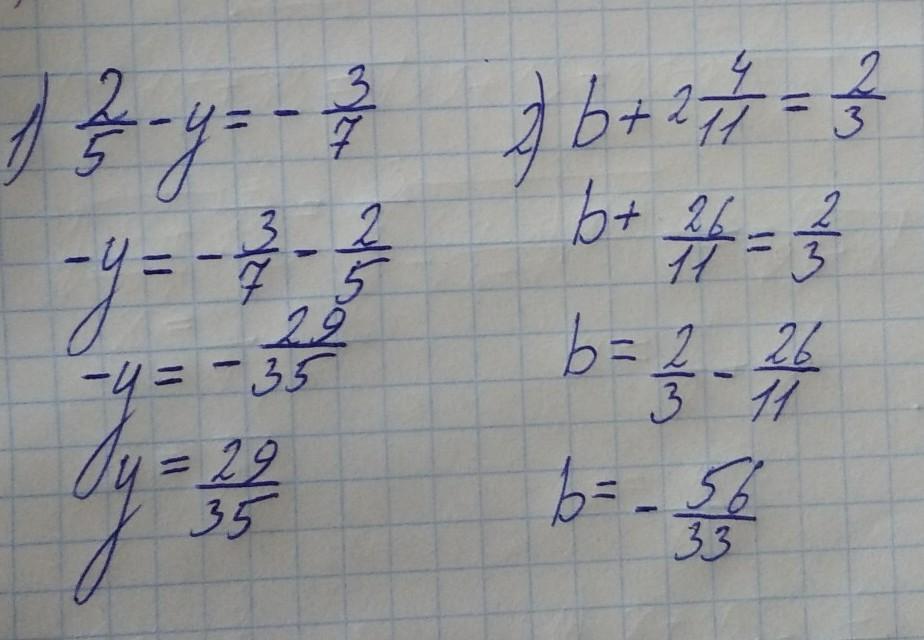 1) 2/5 - y = - 3/7
-y = - 3/7 - 2/5
-y = - 29/35
y = 29/35
2) b + 2 4/11 = 2/3
b + 26/11 = 2/3
b = 2/3 - 26/11
b = - 56/33